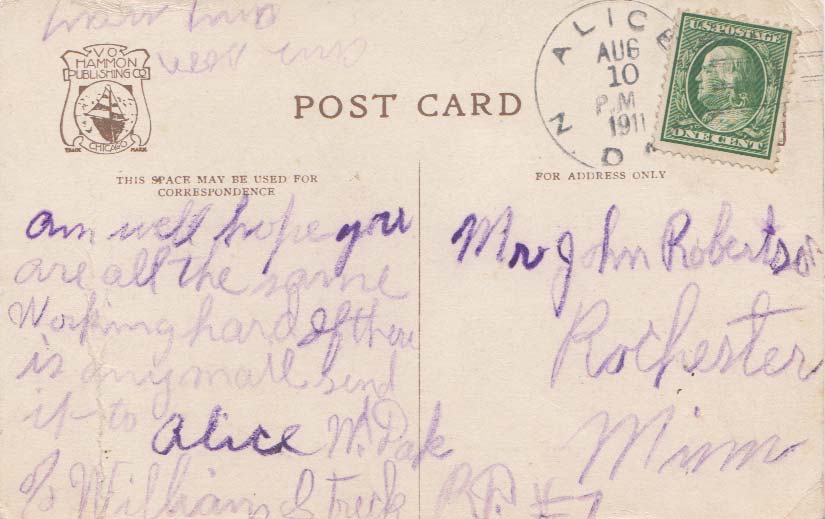 V.O.
HAMMON
PUBLISHING CO
TRADE MARK
CHICAGO
POST CARD
ALICE
AUG
10
P.M
1911
N D
U.S. POSTAGE
ONE CENT
THIS SPACE MAY BE USED FOR
CORRESPONDENCE
FOR ADDRESS ONLY
am well hope you
are all the same
Working hard If there
is any mail send
it to
Alice N. Dak
% William
Mr John Robertson
Rochester
Minn